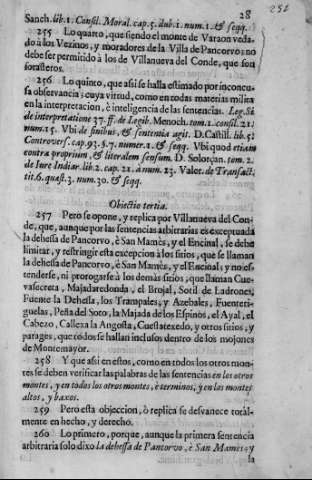 251
28
Sanch. lib. 1. Consil. Moral. cap. 5. dub. 1. num. 1. & seqq.
255 Lo quarto, que siendo el monte de Varaon veda-
do à los Vezinos, y moradores de la Villa de Pancorvo; no
debe ser permitido à los de Villanueva del Conde, que son
forasteros.
256 Lo quinto, que assi se halla estimado por inconcu-
sa observancia; cuya virtud, como en todas materias milita
en la interpretacion, è inteligencia de las sentencias. Leg. Si
de interpretatione 37. ff. de Legib. Menoch. tom. 1. consil. 21.
num. 15. Vbi de finibus, & sententia agit. D. Castill. lib. 5.
Controvers. cap. 93. §. 7. numer. 1. & seqq. Vbi quod etiam
contra proprium, & literalem sensum. D. Solorçan. tom. 2.
de Iure Indiar. lib. 2. cap. 21. à num. 23. Valer. de Transact.
tit. 6. quæst. 3. num. 30. & seqq.
Obiectio tertia.
257 Pero se opone, y replica por Villanueva del Con-
de, que, aunque por las sentencias arbitrarias es exceptuada
la dehessa de Pancorvo, è San Mamès, y el Encinal, se debe
limitar, y restringir esta excepcion à los sitios, que se llaman
la dehessa de Pancorvo, è San Mamès, y el Encinal; y no es-
tenderse, ni prorogarse à los demàs sitios, que llaman Cue-
vasecreta, Majadaredonda, el Brojal, Sotil de Ladrones,
Fuente la Dehessa, los Trampales, y Azebales, Fuenteri-
guelas, Peña del Soto, la Majada de los Espinos, el Ayal, el
Cabezo, Callexa la Angosta, Cuestatexedo, y otros sitios, y
parages, que todos se hallan inclusos dentro de los mojones
de Montemayor.
258 Y que assi en estos, como en todos los otros mon-
tes se deben verificar las palabras de las sentencias en los otros
montes, y en todos los otros montes, è terminos, y en los montes
altos, y baxos.
259 Pero esta objeccion, ò replica se desvanece total-
mente en hecho, y derecho.
260 Lo primero, porque, aunque la primera sentencia
arbitraria solo dixo la dehessa de Pancorvo, è San Mamès; y
la